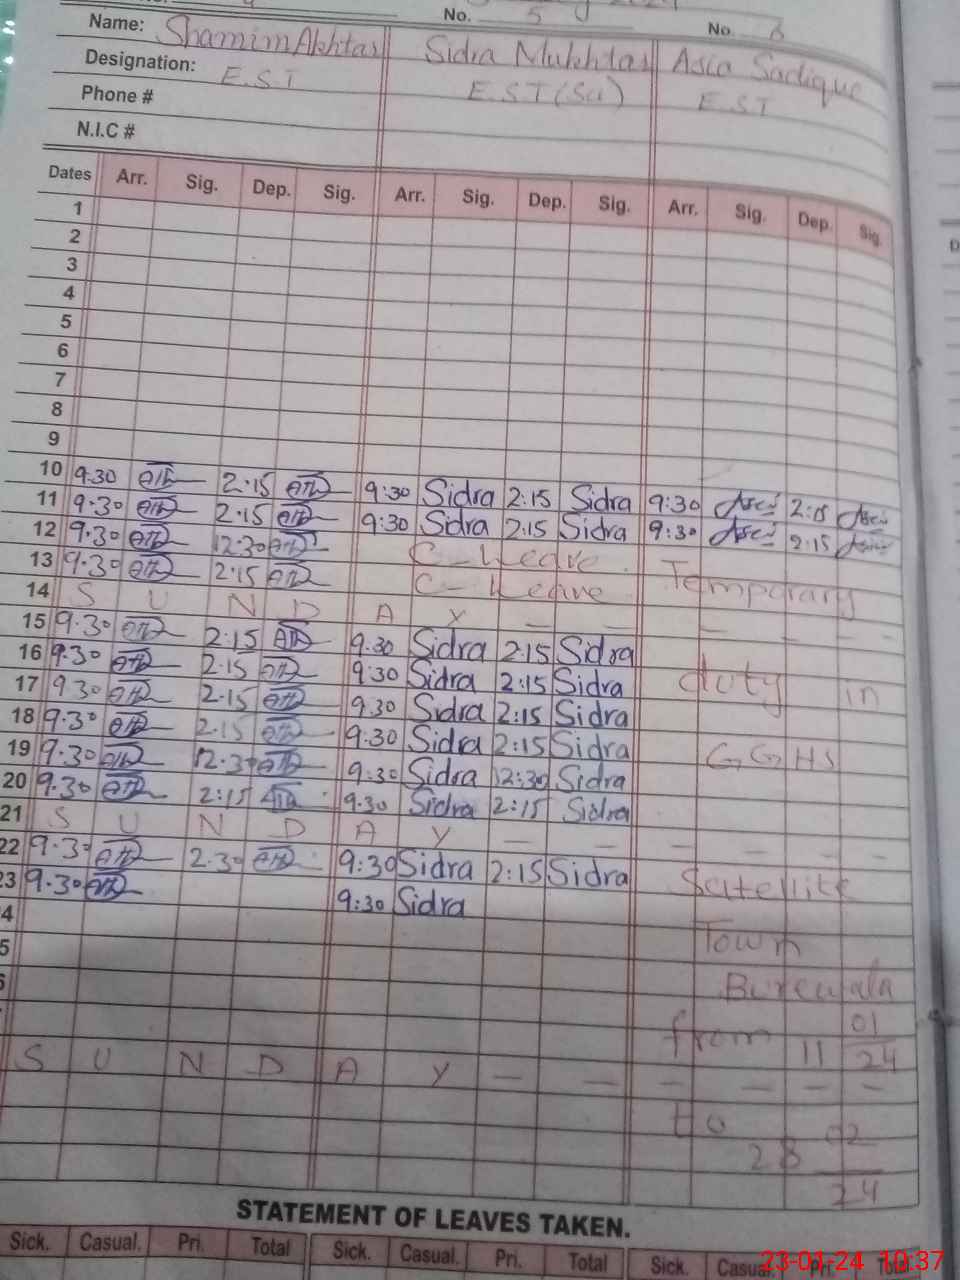 No. 5 No. 6
Name: Shamim Akhtar Sidra Mukhtar Asia Sadique
Designation: E.S.T E.S.T (Sci) E.S.T
Phone #
N.I.C #
Dates Arr. Sig. Dep. Sig. Arr. Sig. Dep. Sig. Arr. Sig. Dep. Sig.
1
2
3
4
5
6
7
8
9
10 9.30 2.15 9:30 Sidra 2:15 Sidra 9:30 2:15
11 9.30 2.15 9:30 Sidra 2:15 Sidra 9:30 2:15
12 9.30 12.30 C-Leave
13 9.30 2.15 C-Leave Temporary
14 S U N D A Y — — — — — —
15 9.30 2:15 9.30 Sidra 2:15 Sidra
16 9.30 2.15 9:30 Sidra 2:15 Sidra duty in
17 9.30 2.15 9:30 Sidra 2:15 Sidra
18 9.30 2.15 9:30 Sidra 2:15 Sidra GGHS
19 9.30 12.30 9:30 Sidra 12:30 Sidra
20 9.30 2:15 9:30 Sidra 2:15 Sidra
21 S U N D A Y — — — — — —
22 9.30 2.30 9:30 Sidra 2:15 Sidra Satellite
23 9.30 9:30 Sidra
4 Town
5 Burewala
from 11 01/24
S U N D A Y — — — — — —
to 28 02/24
STATEMENT OF LEAVES TAKEN.
Sick. Casual. Pri. Total Sick. Casual. Pri. Total Sick. Casual. Pri. Total
23-01-24 10:37